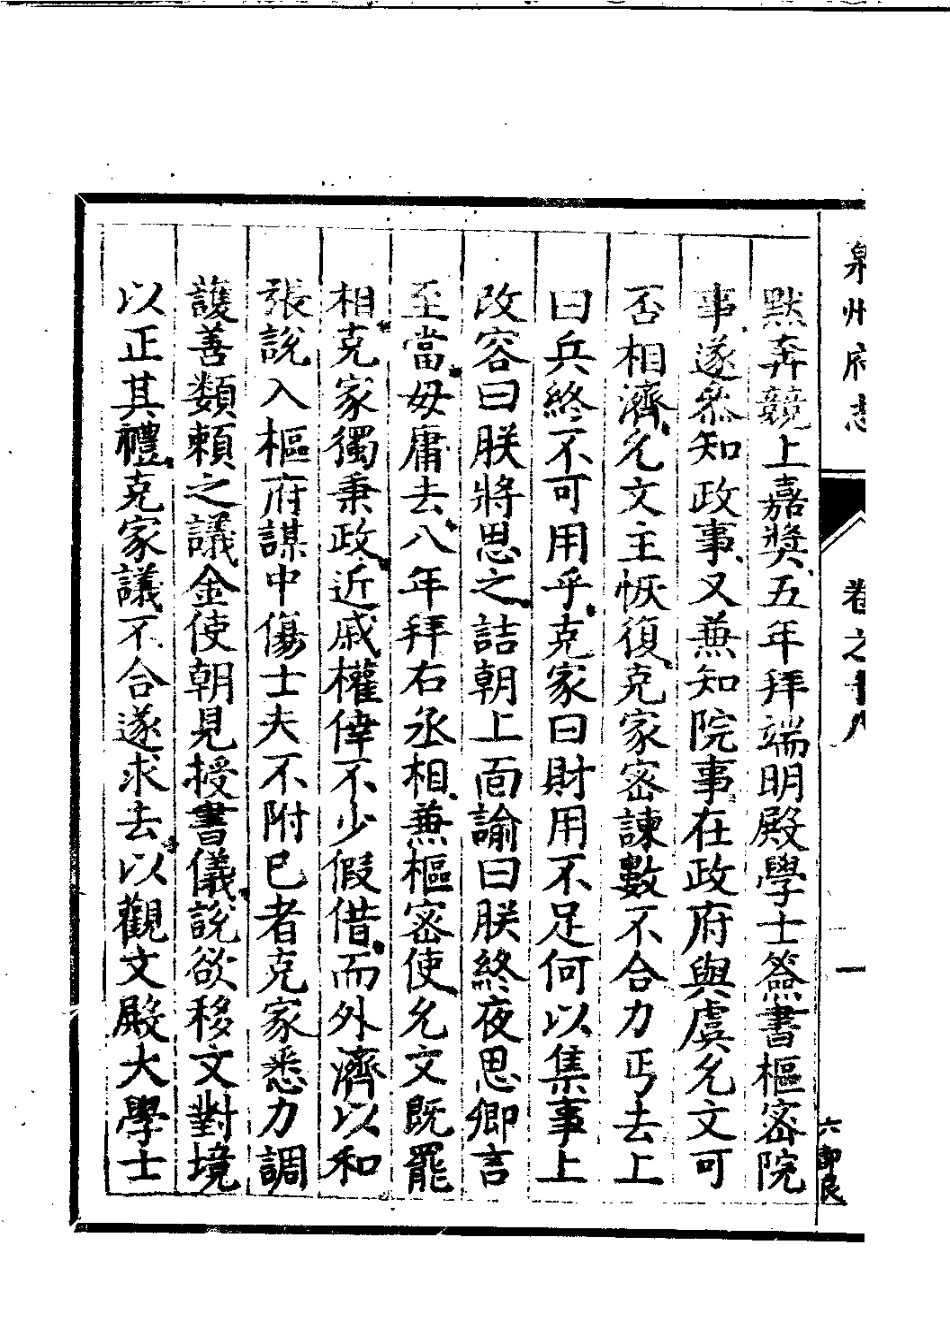 泉州府志
卷之十八
一
六
默奔競上嘉獎五年拜端明殿學士簽書樞密院
事遂叅知政事又兼知院事在政府與虞允文可
否相濟允文主恢復克家密諫數不合力丐去上
曰兵終不可用乎克家曰財用不足何以集事上
改容曰朕將思之詰朝上面諭曰朕終夜思卿言
至當毋庸去八年拜右丞相兼樞密使允文既罷
相克家獨秉政近戚權倖不少假借而外濟以和
張說入樞府謀中傷士夫不附己者克家悉力調
護善類賴之議金使朝見授書儀說欲移文對境
以正其禮克家議不合遂求去以觀文殿大學士